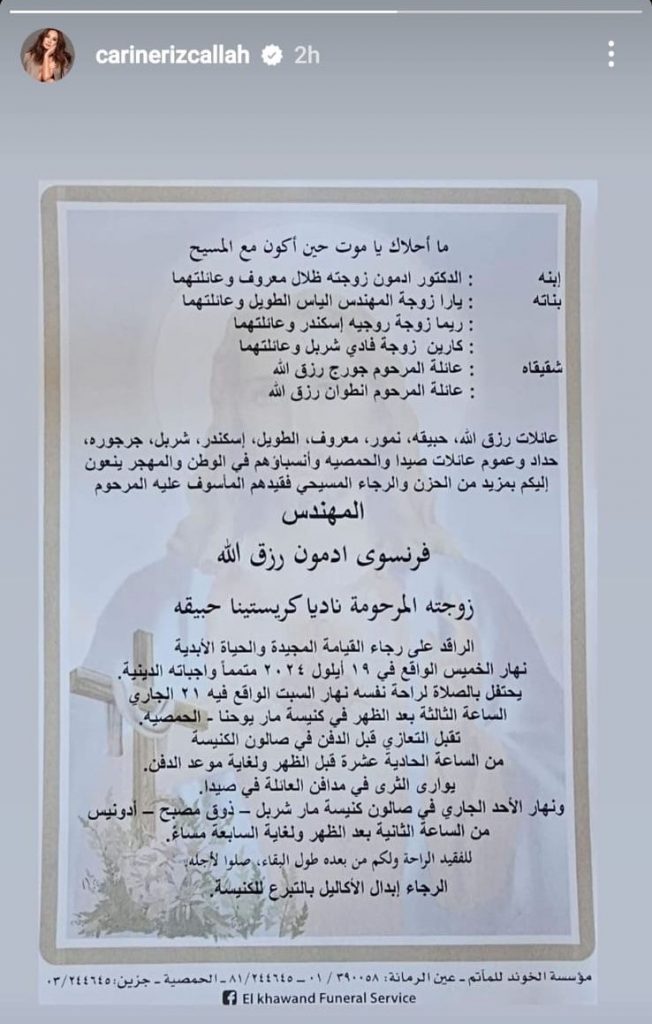 carinerizcallah 2h
ما أحلاك يا موت حين أكون مع المسيح
إبنه : الدكتور ادمون زوجته ظلال معروف وعائلتهما
بناته : يارا زوجة المهندس الياس الطويل وعائلتهما
: ريما زوجة روجيه إسكندر وعائلتهما
: كارين زوجة فادي شربل وعائلتهما
شقيقاه : عائلة المرحوم جورج رزق الله
: عائلة المرحوم انطوان رزق الله
عائلات رزق الله، حبيقه، نمور، معروف، الطويل، إسكندر، شربل، جرجوره،
حداد وعموم عائلات صيدا والحمصيه وأنسباؤهم في الوطن والمهجر ينعون
إليكم بمزيد من الحزن والرجاء المسيحي فقيدهم المأسوف عليه المرحوم
المهندس
فرنسوى ادمون رزق الله
زوجته المرحومة ناديا كريستينا حبيقه
الراقد على رجاء القيامة المجيدة والحياة الأبدية
نهار الخميس الواقع في ١٩ أيلول ٢٠٢٤ متمماً واجباته الدينية.
يحتفل بالصلاة لراحة نفسه نهار السبت الواقع فيه ٢١ الجاري
الساعة الثالثة بعد الظهر في كنيسة مار يوحنا - الحمصيه.
تقبل التعازي قبل الدفن في صالون الكنيسة
من الساعة الحادية عشرة قبل الظهر ولغاية موعد الدفن.
يوارى الثرى في مدافن العائلة في صيدا.
ونهار الأحد الجاري في صالون كنيسة مار شربل – ذوق مصبح – أدونيس
من الساعة الثانية بعد الظهر ولغاية السابعة مساءً.
للفقيد الراحة ولكم من بعده طول البقاء، صلوا لأجله.
الرجاء إبدال الأكاليل بالتبرع للكنيسة.
مؤسسة الخوند للمأتم - عين الرمانة: ٣٩٠٠٥٨ / ٠١ - ٨١/٢٤٤٦٤٥ - الحمصية - جزين: ٠٣/٢٤٤٦٤٥
El khawand Funeral Service